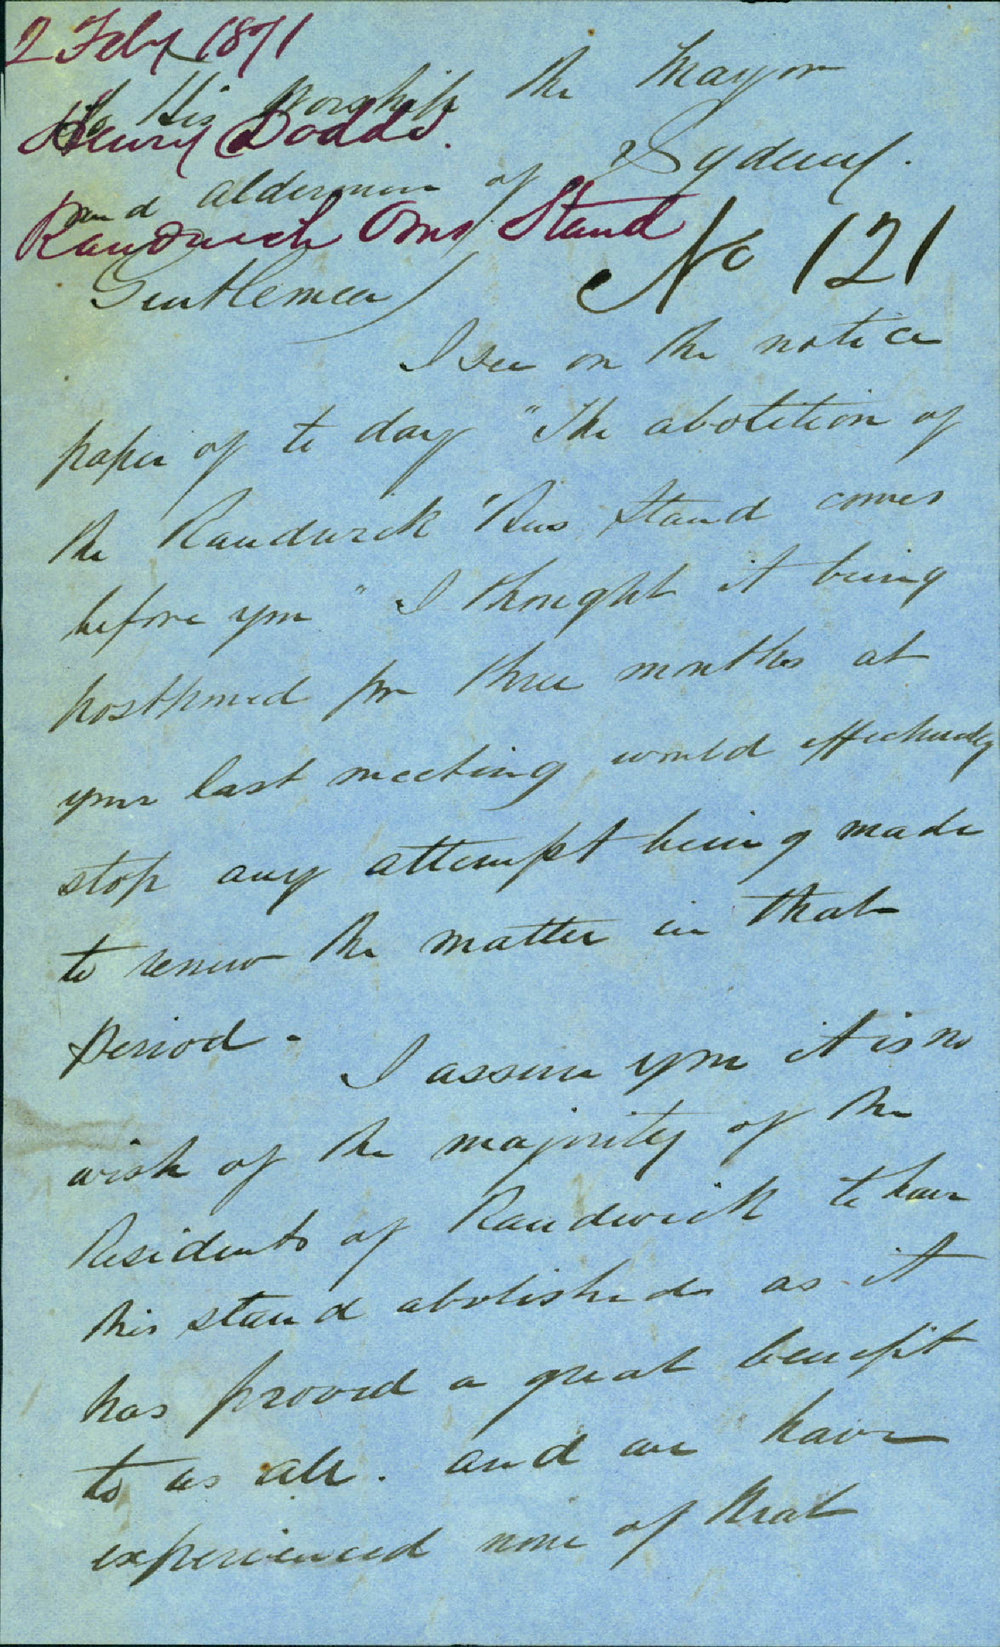 2 Feby 1871
To His Worship the Mayor
Henry Dodds.
and aldermen of Sydney.
Randwick Omn Stand
No 121
Gentlemen
I see on the notice
paper of to day "The abolition of
the Randwick 'Bus Stand comes
before you" I thought it being
postponed for three months at
your last meeting would effectually
stop any attempt being made
to renew the matter in that
period -
I assure you it is no
wish of the majority of the
Residents of Randwick to have
this stand abolished as it
has proved a great benefit
to us all. and we have
experienced none of that